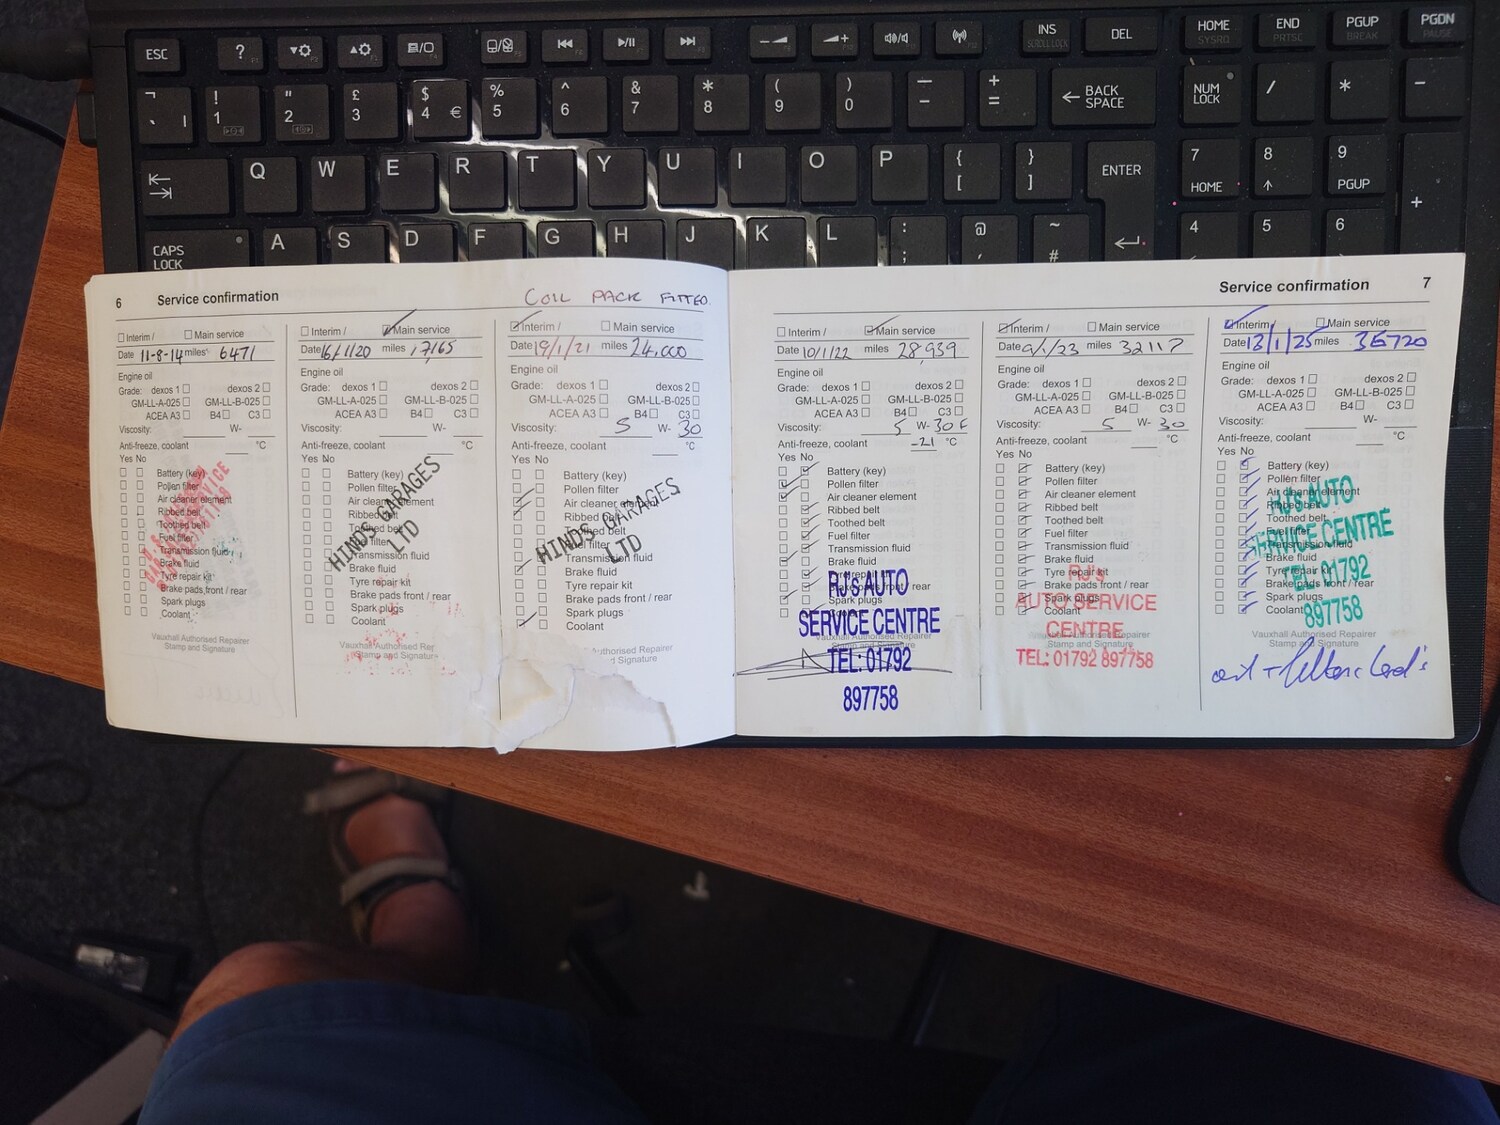 ESC ? F1 F2 F3 INS SCROLL LOCK DEL HOME SYSRQ END PRTSC PGUP BREAK PGDN PAUSE
¬ ` | ! 1 " 2 £ 3 $ 4 € % 5 ^ 6 & 7 * 8 ( 9 ) 0 _ - + = BACK SPACE NUM LOCK / * -
Q W E R T Y U I O P { [ } ] ENTER 7 HOME 8 9 PGUP +
CAPS LOCK A S D F G H J K L : ; @ ' ~ # 4 5 6
6 Service confirmation COIL PACK FITTED
Interim / Main service
Date 11-8-14 miles 6471
Anti-freeze, coolant °C
Viscosity: W-
Yes No
Battery (key)
Pollen filter
Air cleaner element
Ribbed belt
Toothed belt
Fuel filter
Transmission fluid
Brake fluid
Tyre repair kit
Brake pads front / rear
Spark plugs
Coolant
Vauxhall Authorised Repairer
Stamp and Signature
Interim / Main service
Date 16/1/20 miles 17,165
Engine oil
Grade: dexos 1 dexos 2
GM-LL-A-025 GM-LL-B-025
ACEA A3 B4 C3
Viscosity: W-
Anti-freeze, coolant °C
Yes No
Battery (key)
Pollen filter
Air cleaner element
Ribbed belt
Toothed belt
Fuel filter
Transmission fluid
Brake fluid
Tyre repair kit
Brake pads front / rear
Spark plugs
Coolant
HINDS GARAGES
LTD
Vauxhall Authorised Rep
Stamp and Signature
Interim / Main service
Date 19/1/21 miles 24,000
Engine oil
Grade: dexos 1 dexos 2
GM-LL-A-025 GM-LL-B-025
ACEA A3 B4 C3
Viscosity: 5 W- 30
Anti-freeze, coolant °C
Yes No
Battery (key)
Pollen filter
Air cleaner element
Ribbed belt
Toothed belt
Fuel filter
Transmission fluid
Brake fluid
Tyre repair kit
Brake pads front / rear
Spark plugs
Coolant
HINDS GARAGES
LTD
Authorised Repairer
and Signature
Service confirmation 7
Interim / Main service
Date 10/1/22 miles 28,939
Engine oil
Grade: dexos 1 dexos 2
GM-LL-A-025 GM-LL-B-025
ACEA A3 B4 C3
Viscosity: 5 W- 30F
Anti-freeze, coolant -21 °C
Yes No
Battery (key)
Pollen filter
Air cleaner element
Ribbed belt
Toothed belt
Fuel filter
Transmission fluid
Brake fluid
Tyre repair kit
Brake pads front / rear
Spark plugs
Coolant
RJ's AUTO
SERVICE CENTRE
TEL: 01792
897758
Vauxhall Authorised Repairer
Stamp and Signature
Interim / Main service
Date 9/1/23 miles 32117
Engine oil
Grade: dexos 1 dexos 2
GM-LL-A-025 GM-LL-B-025
ACEA A3 B4 C3
Viscosity: 5 W- 30
Anti-freeze, coolant °C
Yes No
Battery (key)
Pollen filter
Air cleaner element
Ribbed belt
Toothed belt
Fuel filter
Transmission fluid
Brake fluid
Tyre repair kit
Brake pads front / rear
Spark plugs
Coolant
RJ's
AUTO SERVICE
CENTRE
TEL: 01792 897758
Vauxhall Authorised Repairer
Stamp and Signature
Interim / Main service
Date 13/1/25 miles 36720
Engine oil
Grade: dexos 1 dexos 2
GM-LL-A-025 GM-LL-B-025
ACEA A3 B4 C3
Viscosity: W-
Anti-freeze, coolant °C
Yes No
Battery (key)
Pollen filter
Air cleaner element
Ribbed belt
Toothed belt
Fuel filter
Transmission fluid
Brake fluid
Tyre repair kit
Brake pads front / rear
Spark plugs
Coolant
RJ's AUTO
SERVICE CENTRE
TEL: 01792
897758
Vauxhall Authorised Repairer
Stamp and Signature